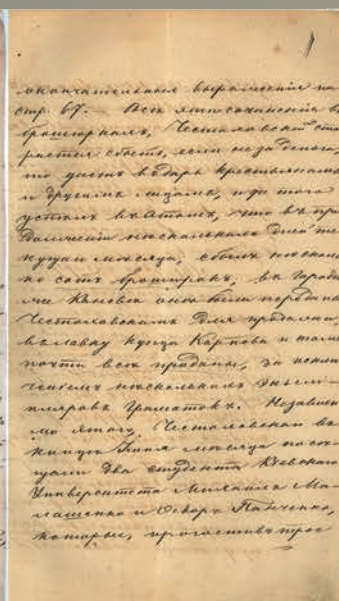 окончательныя выражения на
стр. 67. Все эти сочинения въ
брошюрахъ, Честоховской ста
рается сбыть, если не за деньги,
то даетъ въ даръ крестьянамъ
и другимъ лицамъ, и до того
успелъ въ этомъ, что въ про
долженіи несколькихъ дней те
кущаго месяца, сбылъ несколь
ко сотъ брошюровъ, въ городе
Каневе они были переданы
Честоховскимъ для продажи,
въ лавку купца Карпова и тамъ
почти все проданы, за исклю
ченіемъ несколькихъ экзем
пляровъ Граматокъ. Независи
мо этого, Честоховскаго въ
конце Іюня месяца посе
щали два студента Кіевскаго
Университета Михаилъ Ма
лашенко и Панченко,
которые, прогостивъ трое